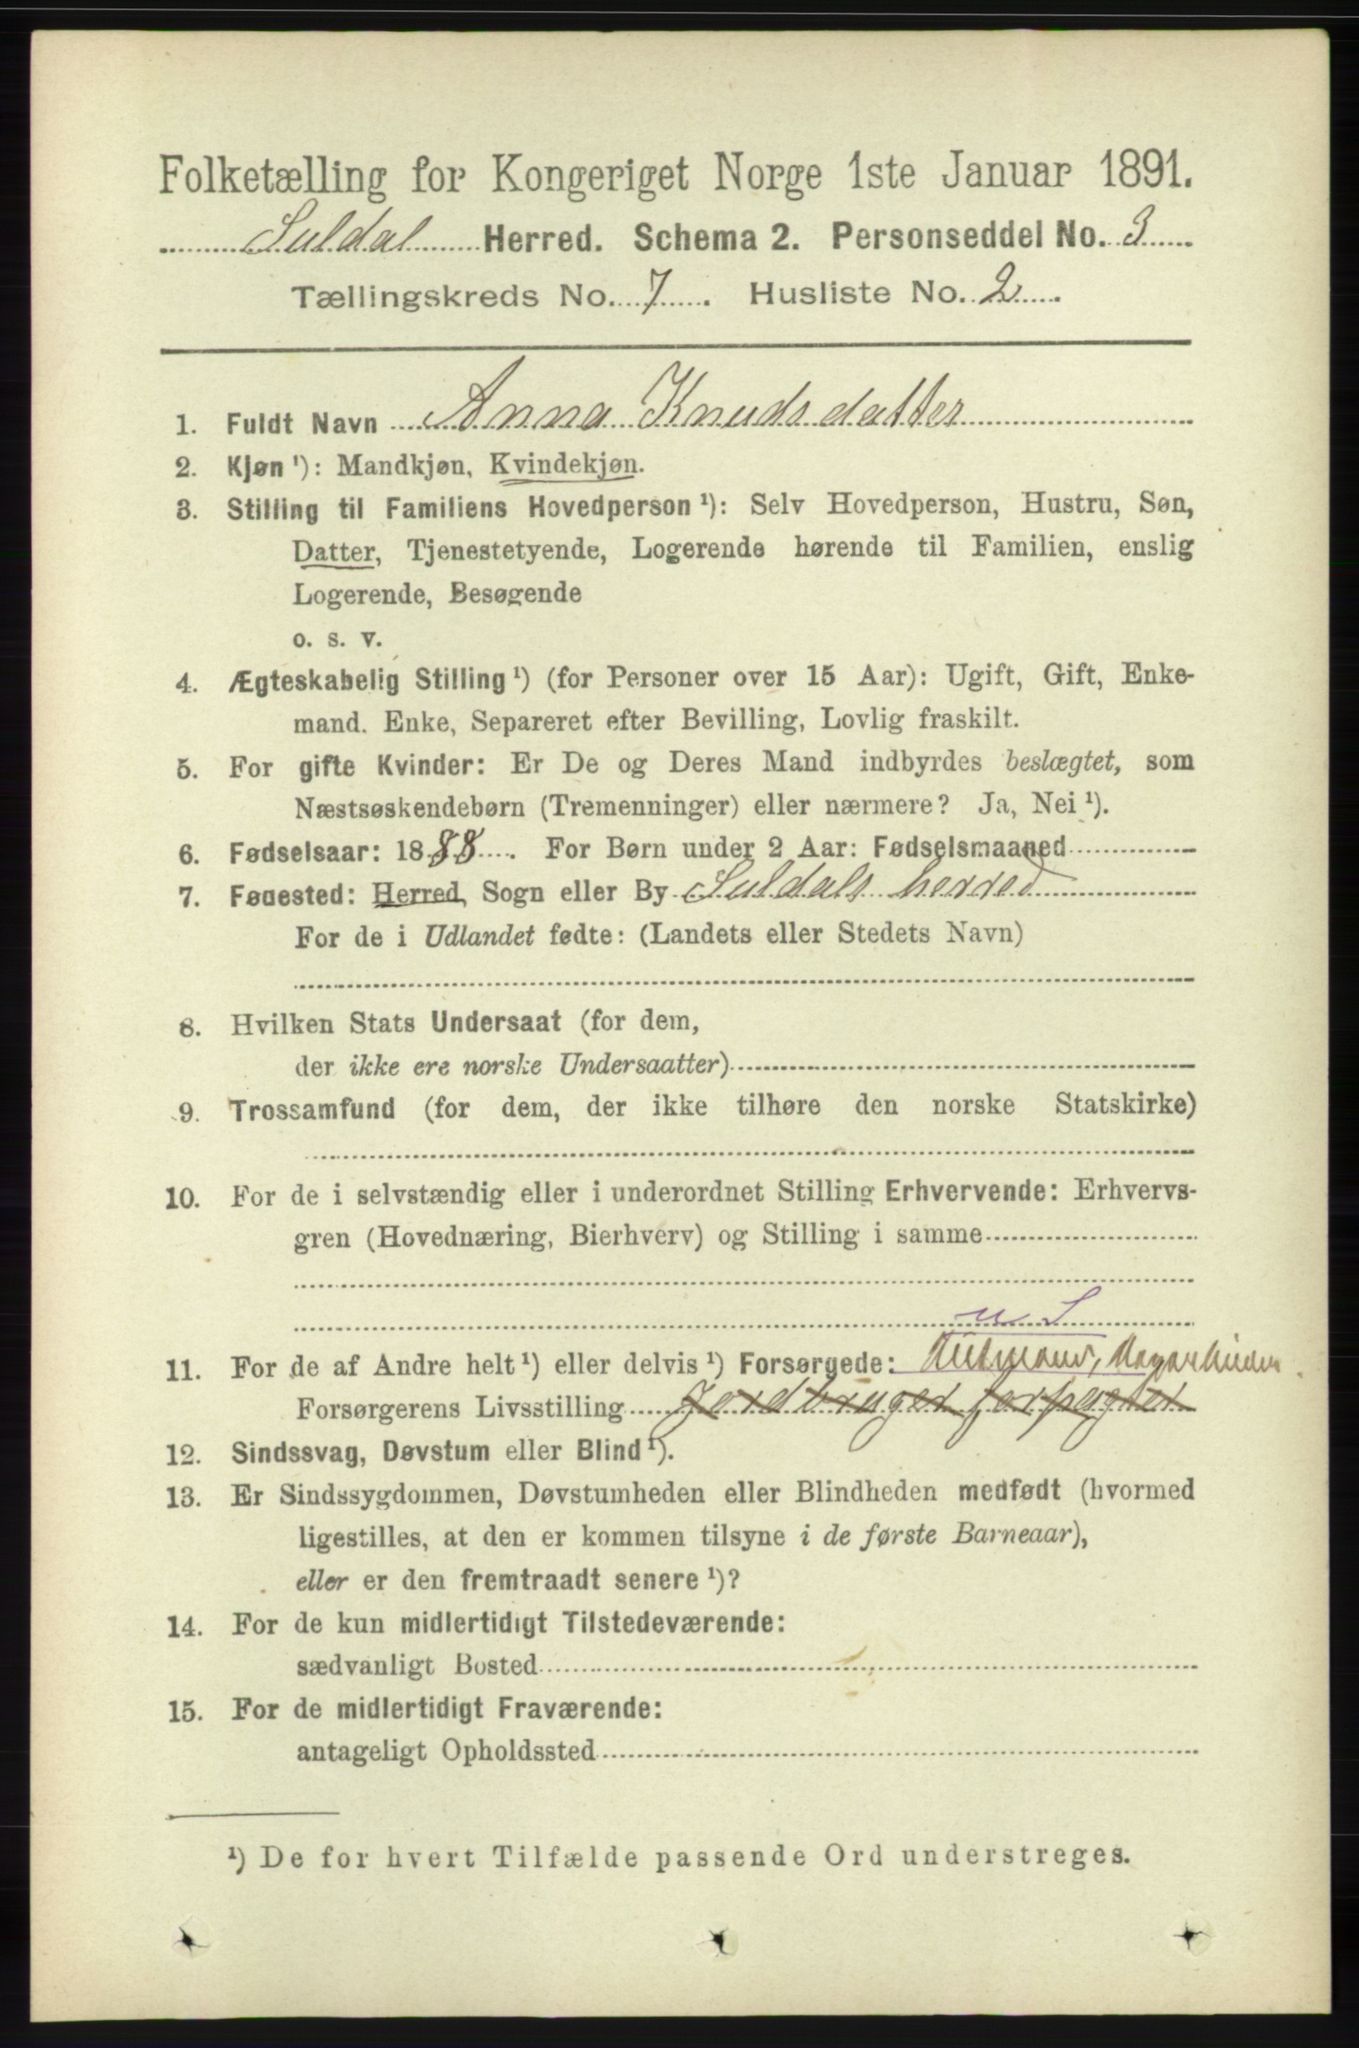 Folketælling for Kongeriget Norge 1ste Januar 1891.
Suldal Herred. Schema 2. Personseddel No. 3
Tællingskreds No. 7. Husliste No. 2
1. Fuldt Navn Anna Knudsdatter
2. Kjøn ¹): Mandkjøn, Kvindekjøn.
3. Stilling til Familiens Hovedperson ¹): Selv Hovedperson, Hustru, Søn,
Datter, Tjenestetyende, Logerende hørende til Familien, enslig
Logerende, Besøgende
o. s. v.
4. Ægteskabelig Stilling ¹) (for Personer over 15 Aar): Ugift, Gift, Enke-
mand. Enke, Separeret efter Bevilling, Lovlig fraskilt.
5. For gifte Kvinder: Er De og Deres Mand indbyrdes beslægtet, som
Næstsøskendebørn (Tremenninger) eller nærmere? Ja, Nei ¹).
6. Fødselsaar: 1888. For Børn under 2 Aar: Fødselsmaaned
7. Føuested: Herred, Sogn eller By Suldals herred
For de i Udlandet fødte: (Landets eller Stedets Navn)
8. Hvilken Stats Undersaat (for dem,
der ikke ere norske Undersaatter)
9. Trossamfund (for dem, der ikke tilhøre den norske Statskirke)
10. For de i selvstændig eller i underordnet Stilling Erhvervende: Erhvervs-
gren (Hovednæring, Bierhverv) og Stilling i samme
u S
11. For de af Andre helt ¹) eller delvis ¹) Forsørgede:
Forsørgerens Livsstilling Jordbruger forpagter
12. Sindssvag, Døvstum eller Blind ¹).
13. Er Sindssygdommen, Døvstumheden eller Blindheden medfødt (hvormed
ligestilles, at den er kommen tilsyne i de første Barneaar),
eller er den fremtraadt senere ¹)?
14. For de kun midlertidigt Tilstedeværende:
sædvanligt Bosted
15. For de midlertidigt Fraværende:
antageligt Opholdssted
¹) De for hvert Tilfælde passende Ord understreges.